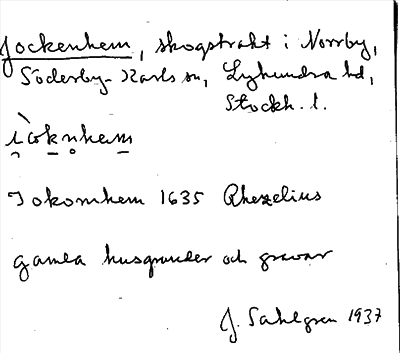 Jockenhem, skogstrakt i Norrby,
Söderby-Karls sn, Lyhundra hd,
Stockh. l.
Jokomhem 1635 Rhezelius
gamla husgrunder och gravar
J. Sahlgren 1937